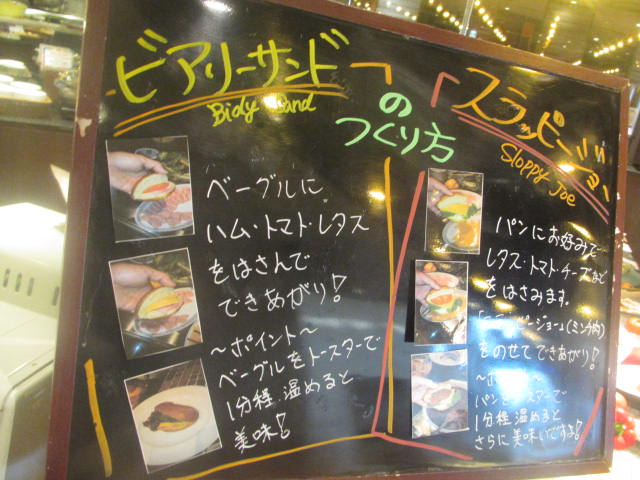 ビアリーサンド」
Bialy Sand
の
つくり方
「スラッピージョー
Sloppy Joe
ベーグルに
ハム・トマト・レタス
をはさんで
できあがり!
〜ポイント〜
ベーグルをトースターで
1分程温めると
美味!
パンにお好みで
レタス・トマト・チーズなど
をはさみます。
ジョー(ミンチ肉)
をのせてできあがり!
1分程温めると
さらに美味しいですよ!